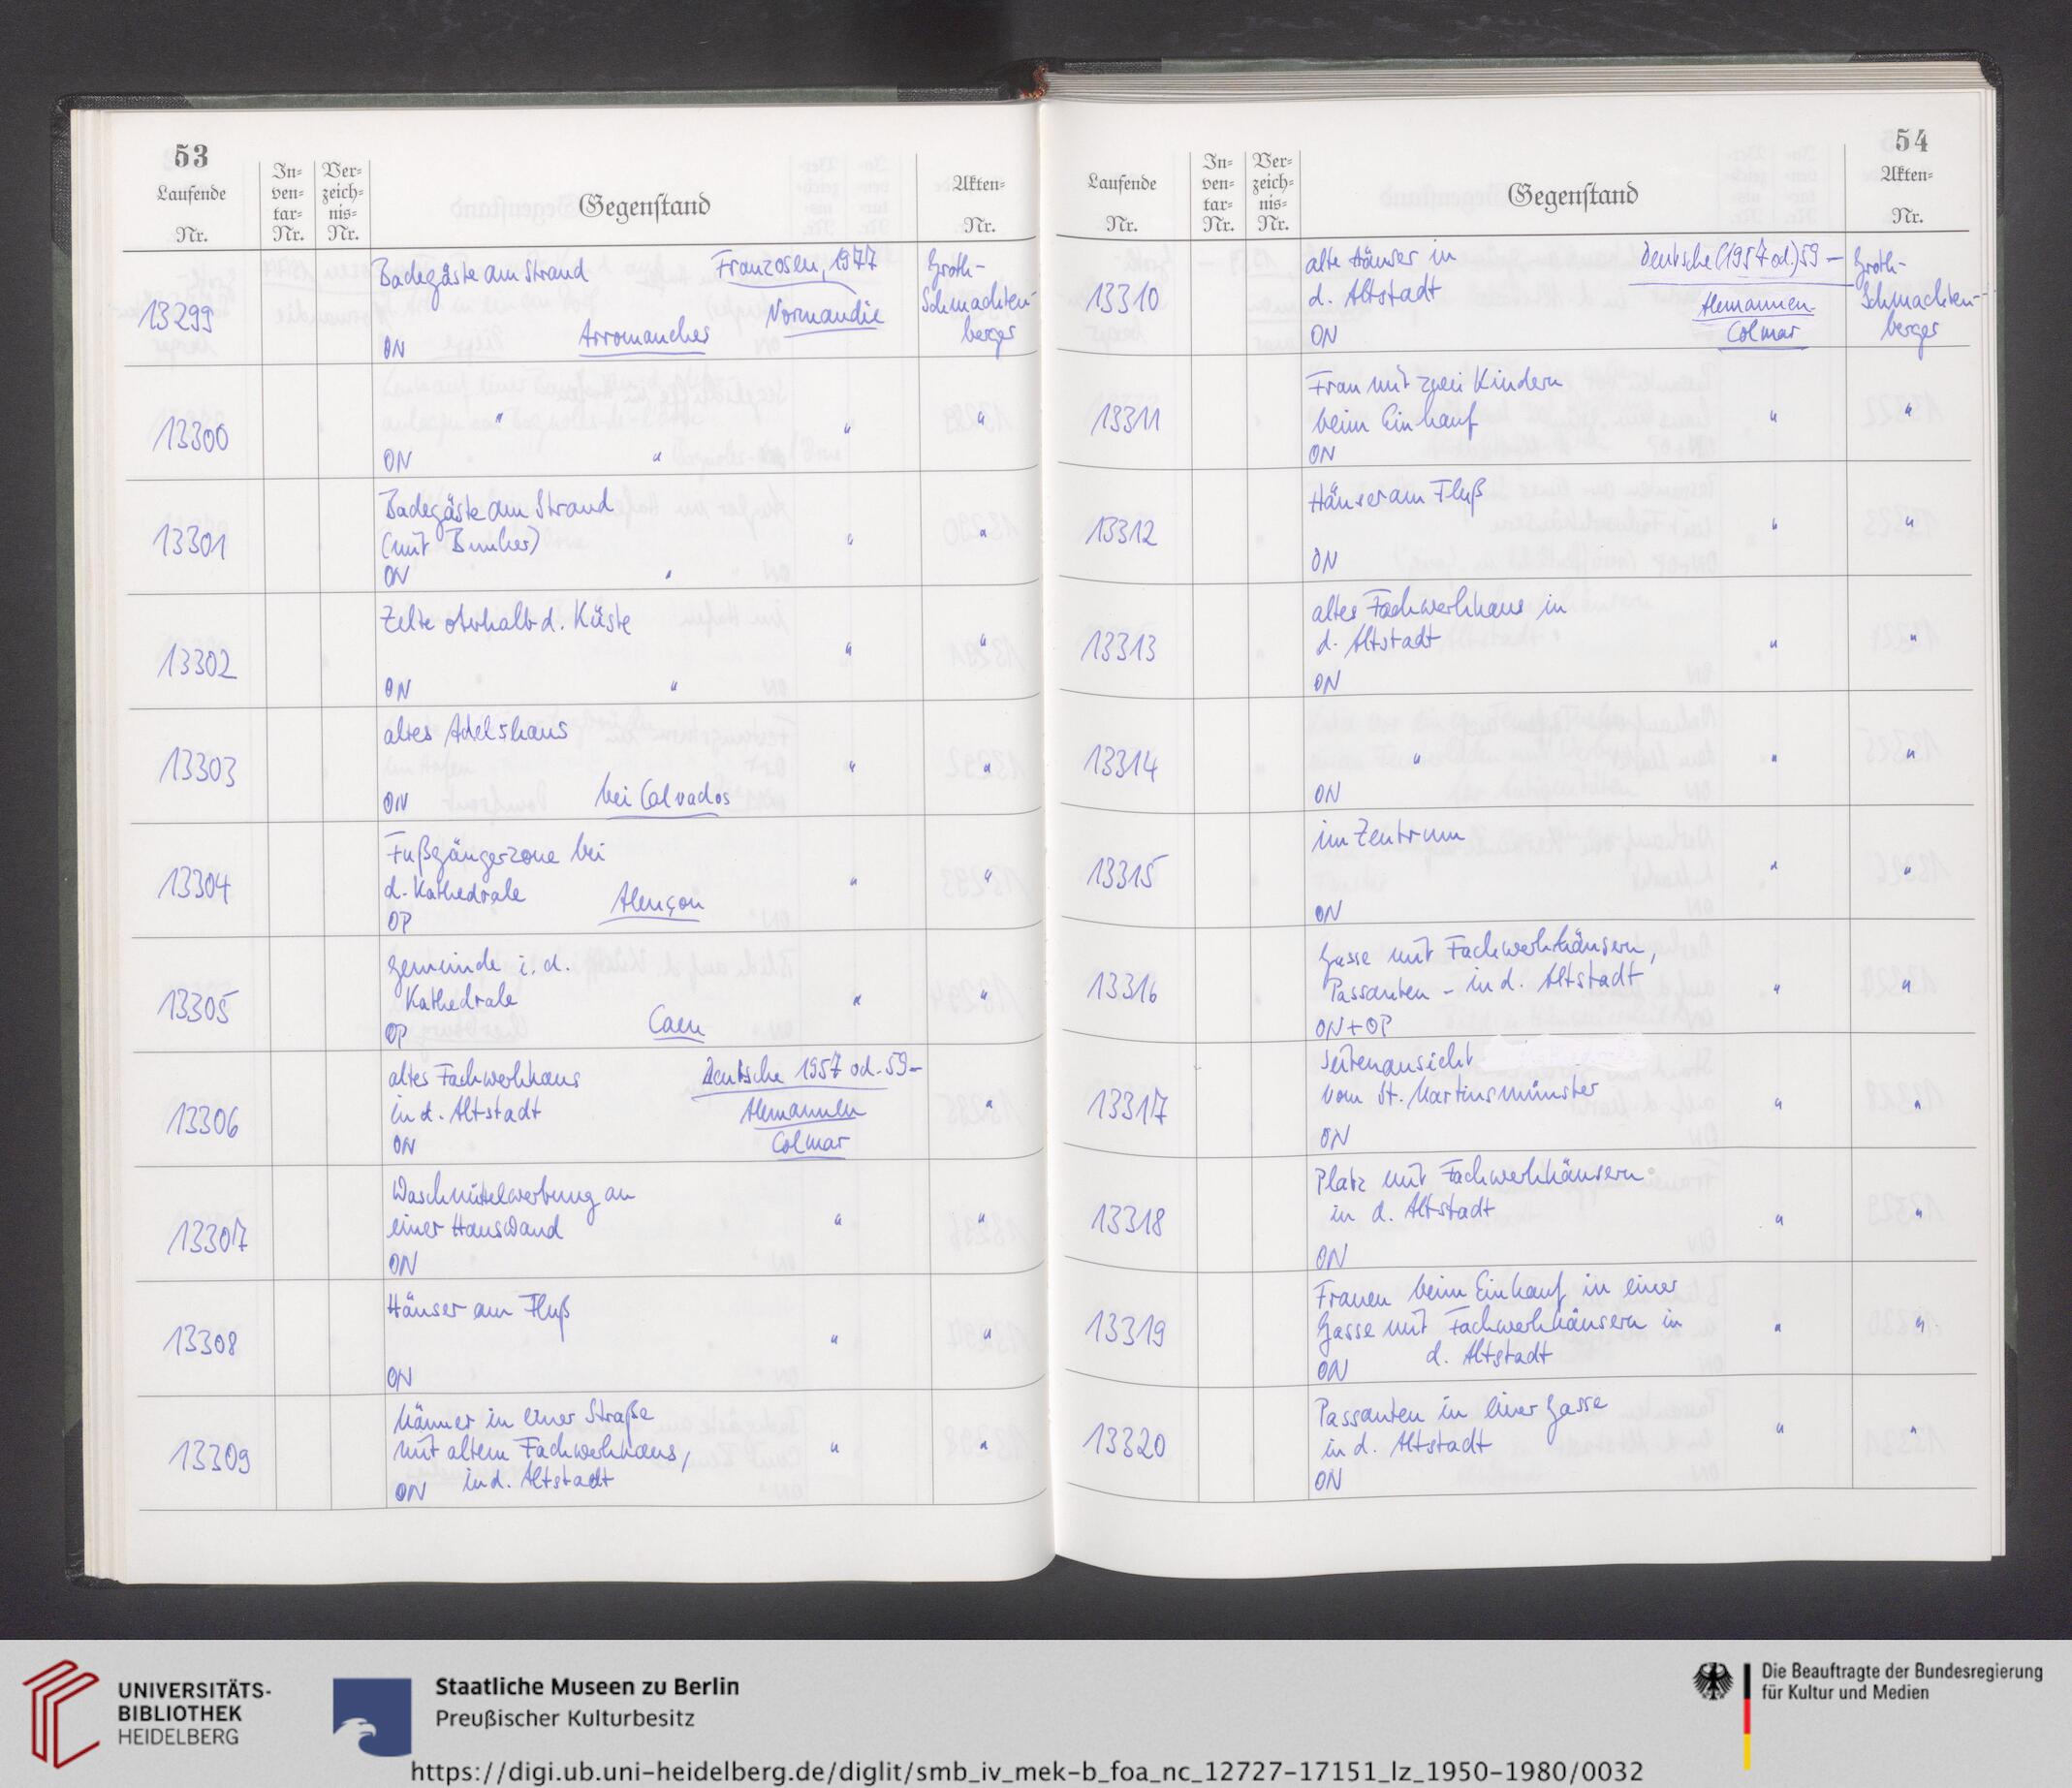 53
Laufende Nr.
In-ven-tar-Nr.
Ver-zeich-nis-Nr.
Gegenstand
Akten-Nr.
13299
Badegäste am Strand Franzosen, 1977
Normandie
ON Arromanches
Groth-
Schmachten-
berger
13300
" " "
ON "
13301
Badegäste am Strand
(mit Bunker) " "
ON "
13302
Zelte oberhalb d. Küste
" "
ON "
13303
altes Adelshaus
" "
ON bei Calvados
13304
Fußgängerzone bei
d. Kathedrale Alençon " "
OP
13305
Gemeinde i. d.
Kathedrale " "
OP Caen
13306
altes Fachwerkhaus Deutsche 1957 od. 59-
in d. Altstadt Alemannen "
ON Colmar
13307
Waschmittelwerbung an
einer Hauswand " "
ON
13308
Häuser am Fluß
" "
ON
13309
Männer in einer Straße
mit altem Fachwerkhaus, " "
ON in d. Altstadt
54
Laufende Nr.
In-ven-tar-Nr.
Ver-zeich-nis-Nr.
Gegenstand
Akten-Nr.
13310
alte Häuser in Deutsche (1957 od.) 59-
d. Altstadt Alemannen
ON Colmar
Groth-
Schmachten-
berger
13311
Frau mit zwei Kindern
beim Einkauf " "
ON
13312
Häuser am Fluß
" "
ON
13313
altes Fachwerkhaus in
d. Altstadt " "
ON
13314
" " "
ON
13315
im Zentrum
" "
ON
13316
Gasse mit Fachwerkhäusern,
Passanten - in d. Altstadt " "
ON+OP
13317
Seitenansicht
vom St. Martinsmünster " "
ON
13318
Platz mit Fachwerkhäusern
in d. Altstadt " "
ON
13319
Frauen beim Einkauf in einer
Gasse mit Fachwerkhäusern in " "
ON d. Altstadt
13320
Passanten in einer Gasse
in d. Altstadt " "
ON
UNIVERSITÄTS-
BIBLIOTHEK
HEIDELBERG
Staatliche Museen zu Berlin
Preußischer Kulturbesitz
Die Beauftragte der Bundesregierung
für Kultur und Medien
https://digi.ub.uni-heidelberg.de/diglit/smb_iv_mek-b_foa_nc_12727-17151_lz_1950-1980/0032